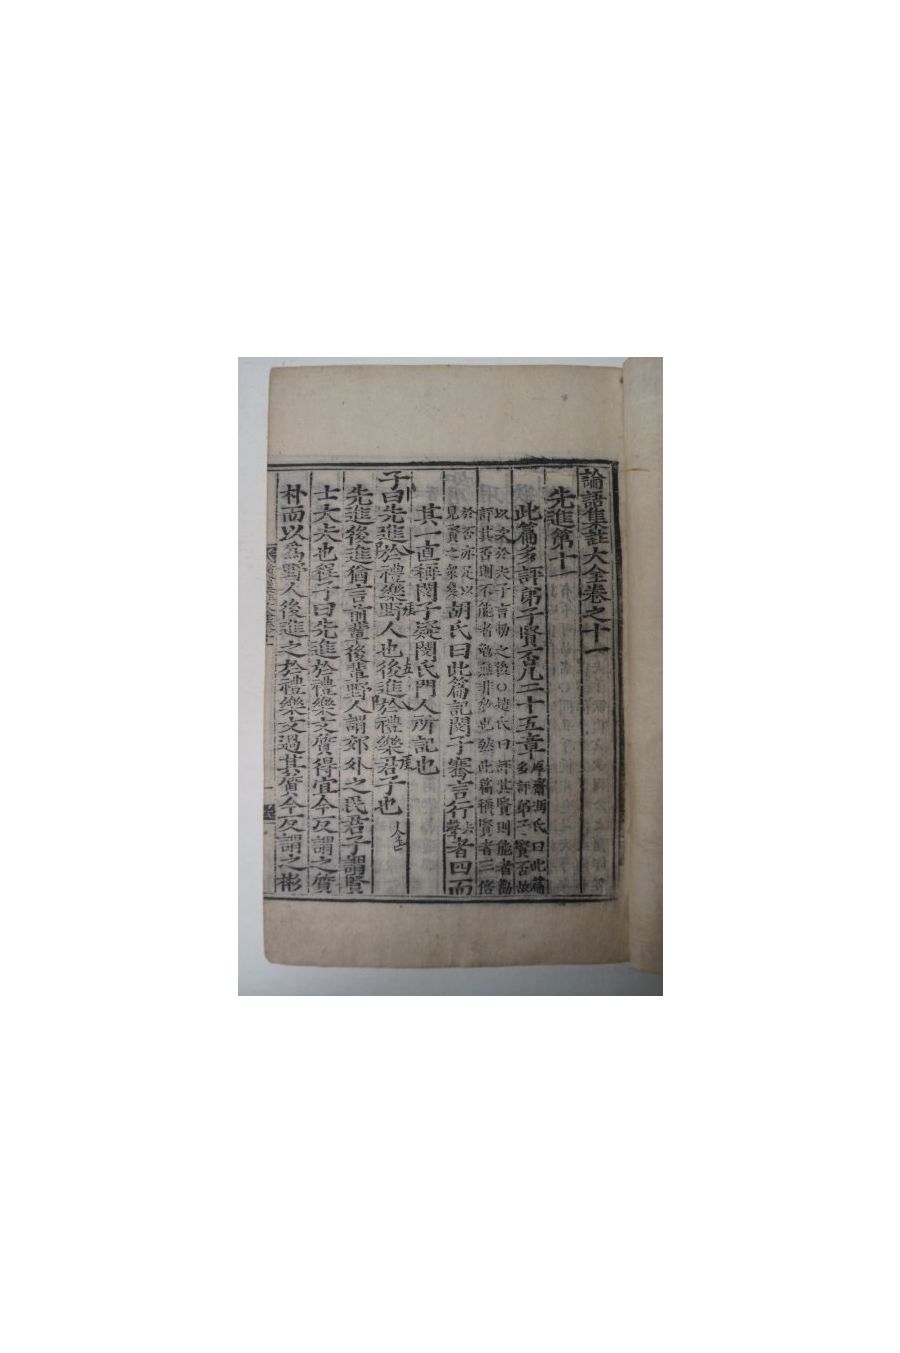 論語集註大全卷之十一
先進第十一
此篇多評弟子賢否凡二十五章 厚齋馮氏曰此篇多評弟子賢否故
以次於夫子言動之後○趙氏曰評其賢則能者勸
評其否則不能者勉無非敎也然此篇稱賢者三倍
於否亦足以見賢之衆矣 胡氏曰此篇記閔子騫言行去聲者四而
其一直稱閔子疑閔氏門人所記也
子曰先進於禮樂野人也後進於禮樂君子也
先進後進猶言前輩後輩野人謂郊外之民君子謂賢
士大夫也程子曰先進於禮樂文質得宜今反謂之質
朴而以爲野人後進之於禮樂文過其質今反謂之彬